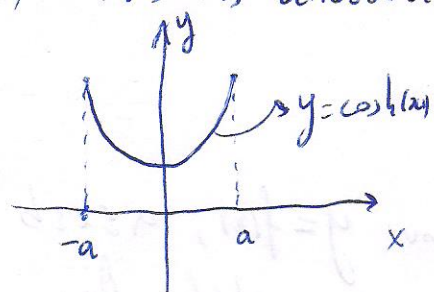 y
y=cosh(x)
-a
a
x